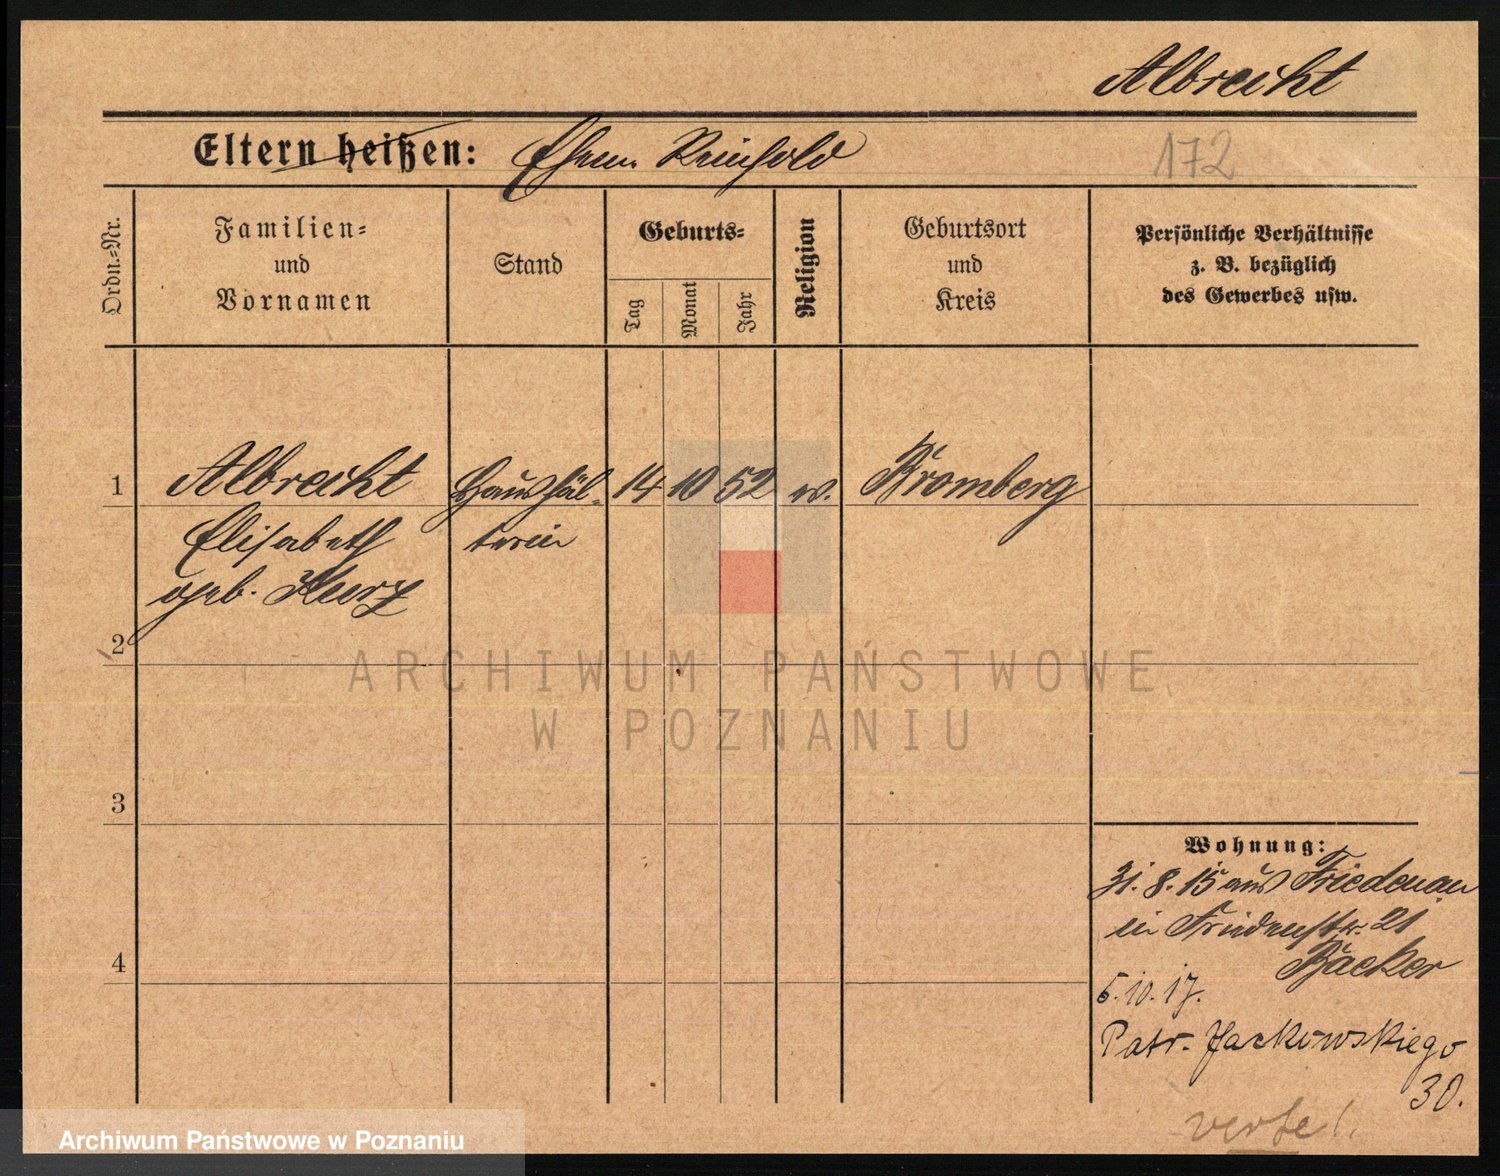 Albrecht
Eltern heißen: Ehem. Reinhold
172
Ordn.-Nr.
Familien-
und
Vornamen
Stand
Geburts-
Tag
Monat
Jahr
Religion
Geburtsort
und
Kreis
Persönliche Verhältnisse
z. B. bezüglich
des Gewerbes usw.
1 Albrecht Haushäl- 14 10 52 ev. Bromberg
Elisabeth terin
geb. Kurz
2
3
4
Wohnung:
31.8.15 aus Friedenau
in Friedenstr. 21
Bäcker
5.10.17.
Patr. Jackowskiego
30.
verte!
ARCHIWUM PAŃSTWOWE
W POZNANIU
Archiwum Państwowe w Poznaniu